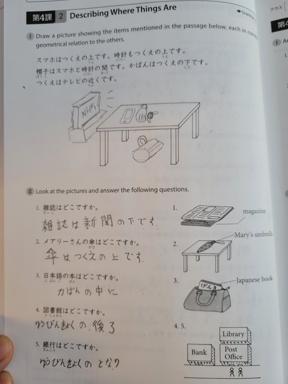 第4課 2 Describing Where Things Are
I Draw a picture showing the items mentioned in the passage below, each in
geometrical relation to the others.
スマホはつくえの上です。時計もつくえの上です。
帽子はスマホと時計の間です。かばんはつくえの下です。
つくえはテレビの近くです。
II Look at the pictures and answer the following questions.
1. 雑誌はどこですか。
雑誌は新聞の下です
2. メアリーさんの傘はどこですか。
傘はつくえの上です
3. 日本語の本はどこですか。
かばんの中に
4. 図書館はどこですか。
ゆうびんきょくの後ろ
5. 銀行はどこですか。
ゆうびんきょくのとなり
1.
magazine
2.
Mary's umbrella
3.
Japanese book
4. 5.
Library
Bank
Post
Office